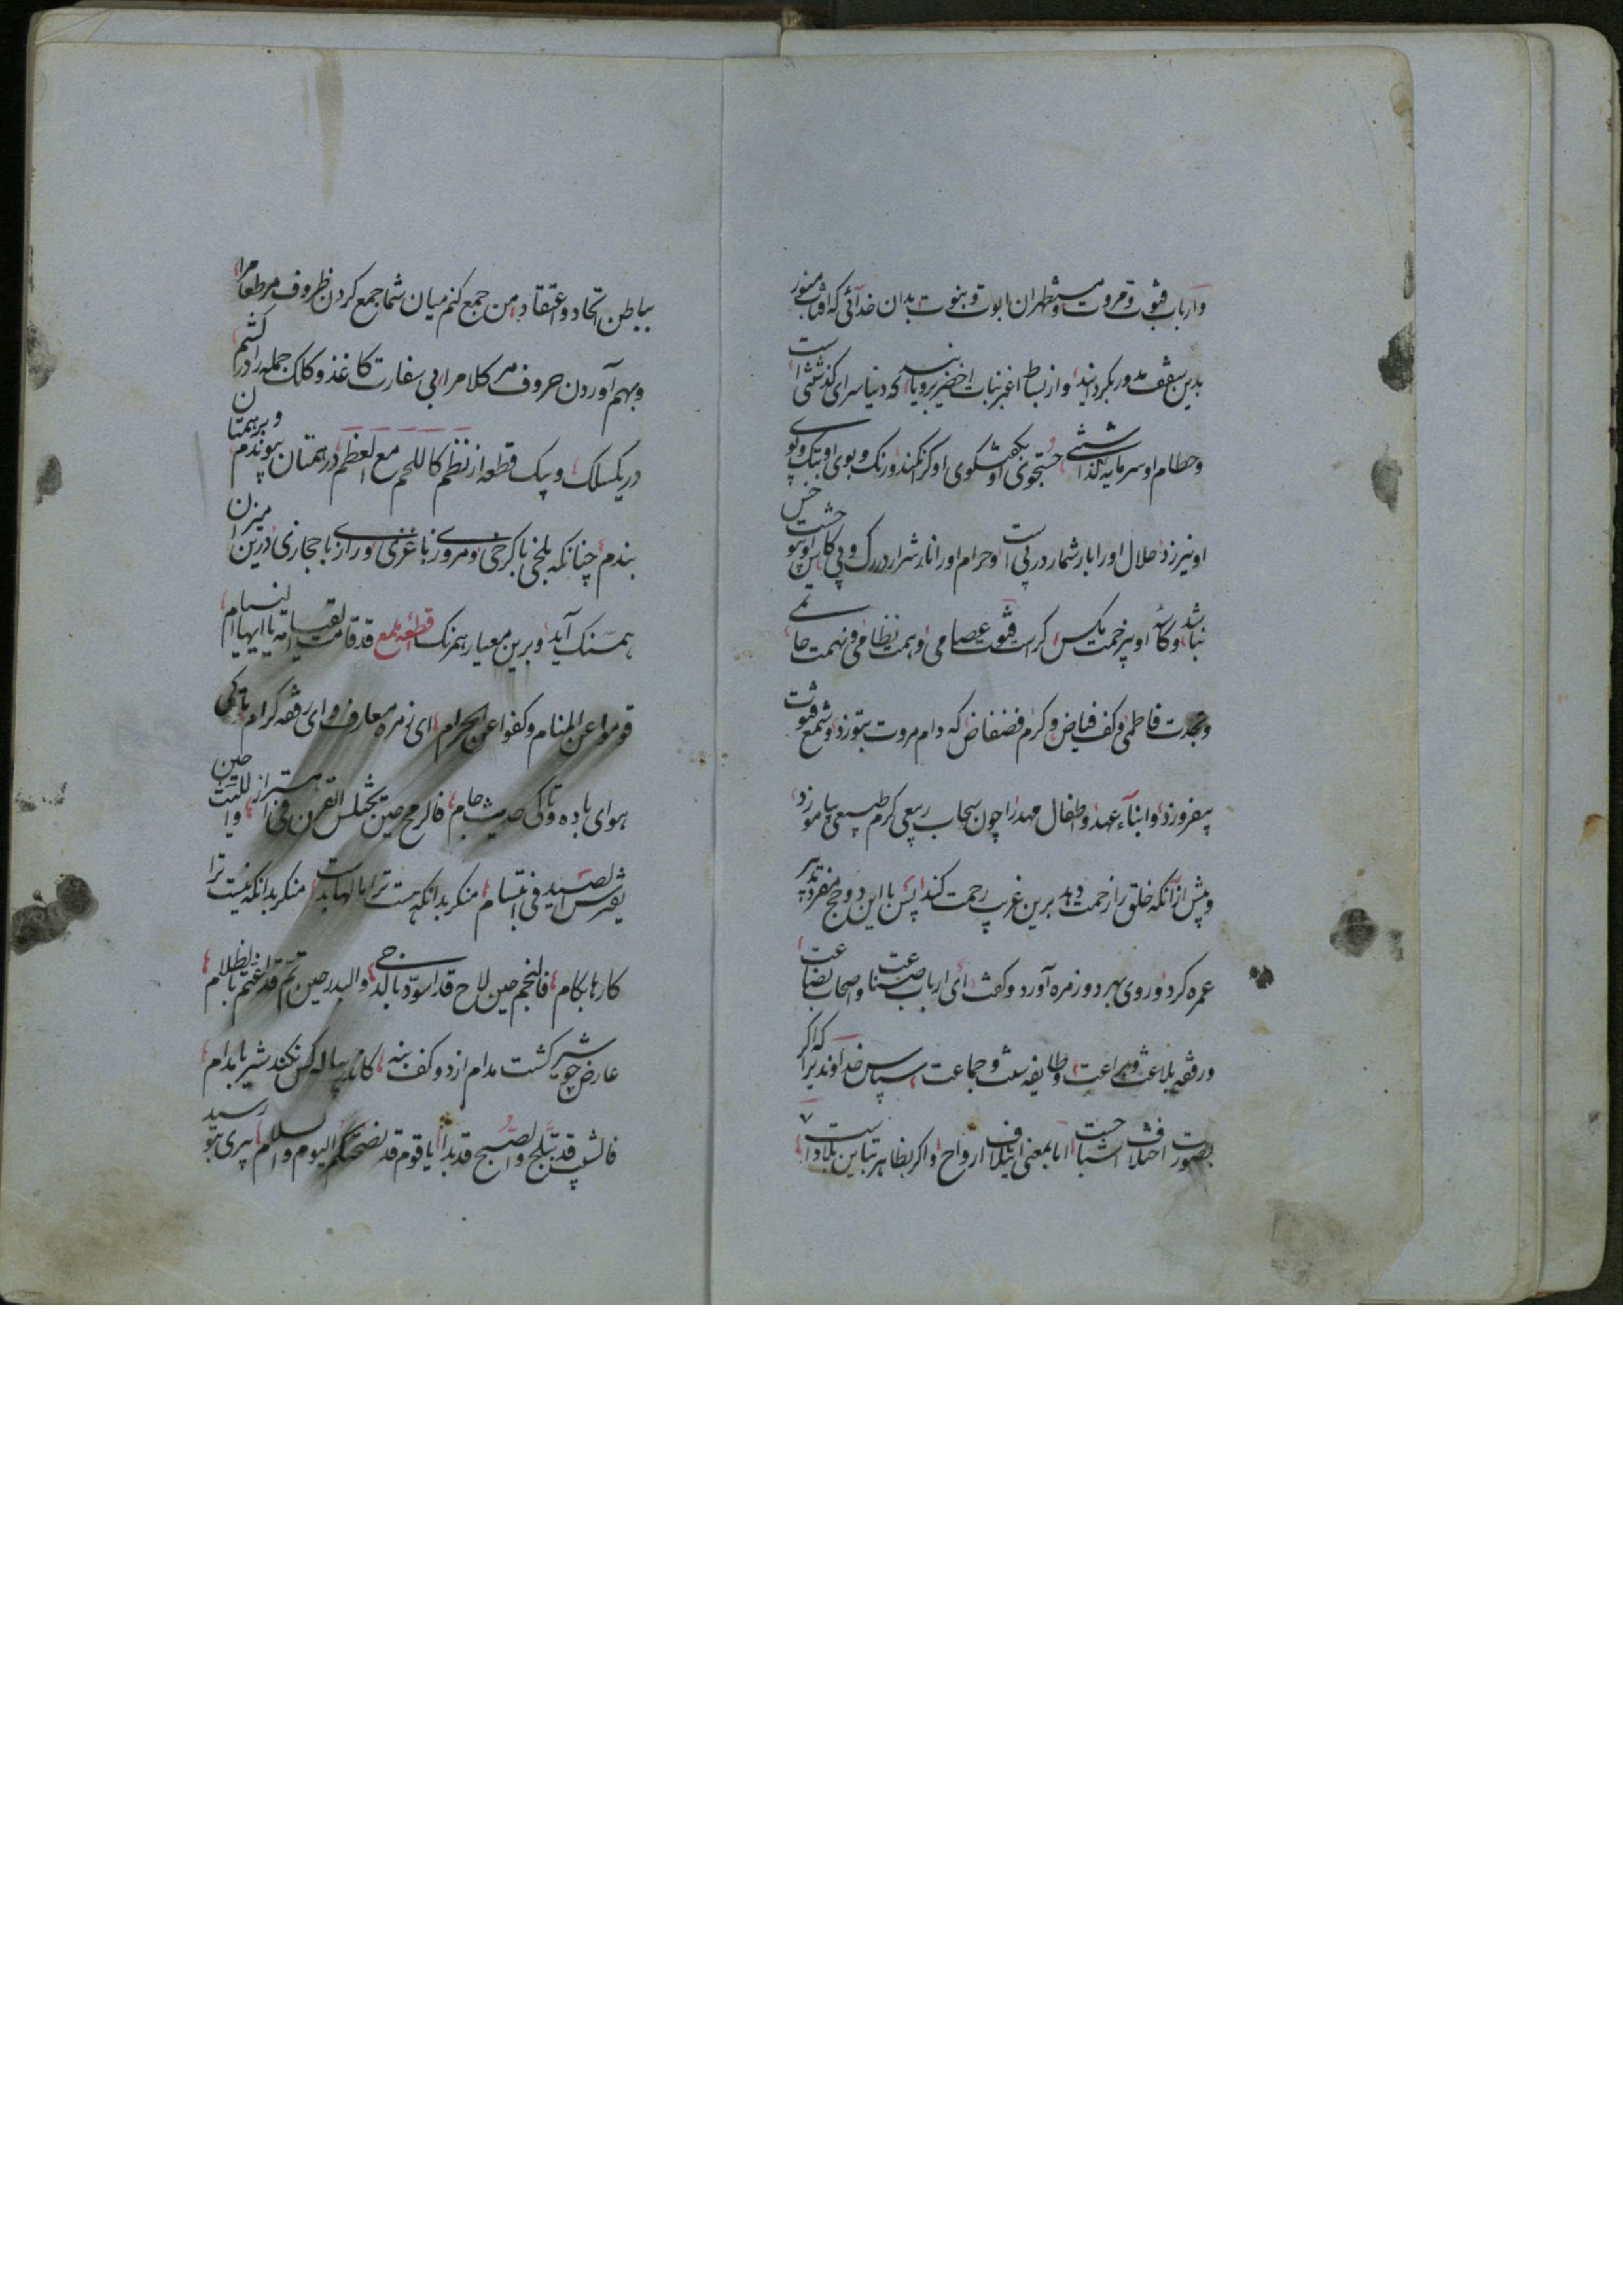 وارباب فتوت و مروت و مستظهران ابوت و بنوت بدان خدائی که آفتاب منور
بدین سقف مدور بگردانید و از بساط اغبر نبات اخضر برویانید که دنیا سرای گذشتنی است
و حطام او سرمایه گذاشتنی جستجوی او بگفتگوی او گر نکند و رنگ و بوی او بتک و پوی
او نیرزد حلال اورا بار شمار در پی است و حرام اورا نار شرار در رگ و پی کاس او بی خس
نباشد و کاسه او بی زحمت مگس کراست فتوت عصامی و همت نظامی و نهمت حاتمی
و نجدت فاطمی و کف فیاض و کرم فضفاض که دام مروت بتوزد و شمع فتوت
بیفروزد و ابناء عهد و اطفال مهد را چون سحاب ربیعی کرم طبیعی بیاموزد
و پیش از آنکه خلق را زحمت دهد برین غریب رحمت کند پس با این دو حج منفرد بتدبیر
عمره کرد و روی بهر دو زمره آورد و گفت ای ارباب صناعت و اصحاب بضاعت
و رفقه بلاغت و براعت و طایفه سنت و جماعت سپاس خداوندیرا که اگر
بصورت اختلاف اشباح است اما بمعنی ایتلاف ارواح و اگر بظاهر تباین بلاد است
بباطن اتحاد و اعتقاد من جمع کنم میان شما جمع کردن ظروف مر طعام را
و بهم آوردن حروف مر کلام را بی سفارت کاغذ و کلک جمله را در کشم
در یک سلک و بیک قطعه از نظم کاللحم مع العظم در همتان پیوندم و برهمتان
بندم چنانکه بلخی با کرخی و مروزی با غزی و رازی با حجازی درین میزان
همسنک آید و برین معیار همرنک قطعه ملمع قد قامت القیامة یا ایها النیام
قوموا عن المنام و کفوا عن الحرام ای زمره معارف و ای رفقه کرام تا کی
هوای باده و تا کی حدیث جام فالرمح حین یختلس القرن فی اهتزاز واللیث حین
یفترس الصید فی ابتسام منکر بدانکه هست ترا سالها بدست منکر بدانکه نیست ترا
کارها بکام فالنجم حین لاح قد اسود بالدجی والبدر حین تم قد اغتم بالظلام
عارض چو شیر گشت مدام از دو کف بنه کاندر پیاله کس نکند شیر با مدام
فالشیب قد تبلج والصبح قد بدا یا قوم قد نصحتکم الیوم والسلام پیری بتو رسید